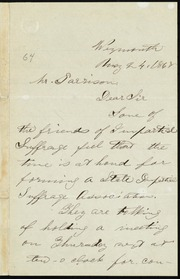 Weymouth
Nov 24, 1868
64
Mr. Garrison.
Dear Sir
Some of
the friends of Impartial
Suffrage feel that the
time is at hand for
forming a State Impartial
Suffrage Association.
They are talking
of holding a meeting
on Thursday next at
ten-o clock for con-